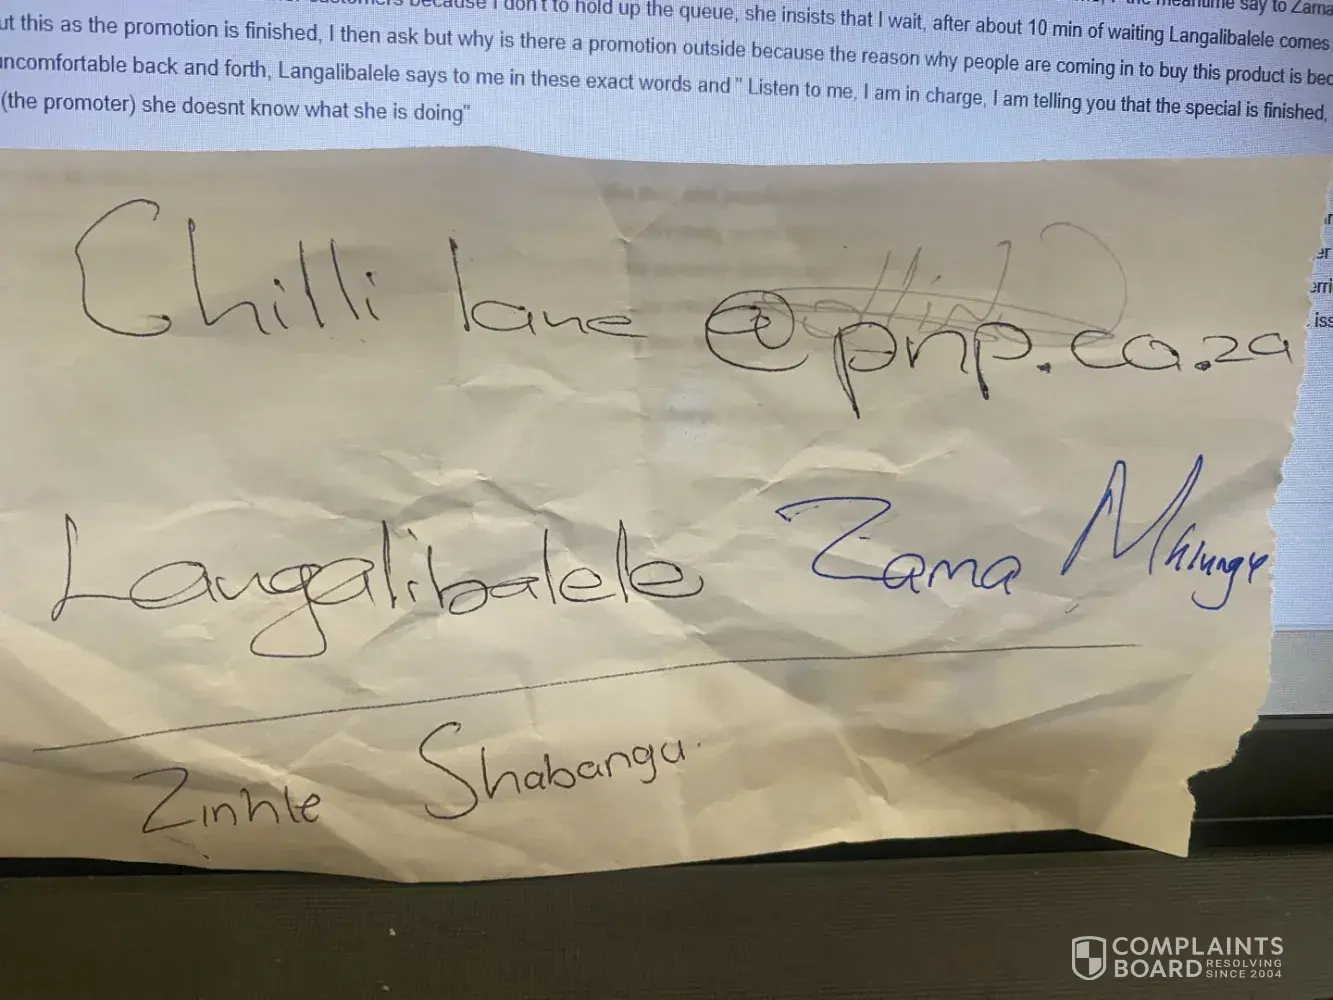 because I don't to hold up the queue, she insists that I wait, after about 10 min of waiting Langalibalele comes
ut this as the promotion is finished, I then ask but why is there a promotion outside because the reason why people are coming in to buy this product is bec
uncomfortable back and forth, Langalibalele says to me in these exact words and " Listen to me, I am in charge, I am telling you that the special is finished,
(the promoter) she doesnt know what she is doing"
Chilli lane @pnp.co.za
Langalibalele Zama Mhlungu
Zinhle Shabangu.
COMPLAINTS
BOARD RESOLVING
SINCE 2004